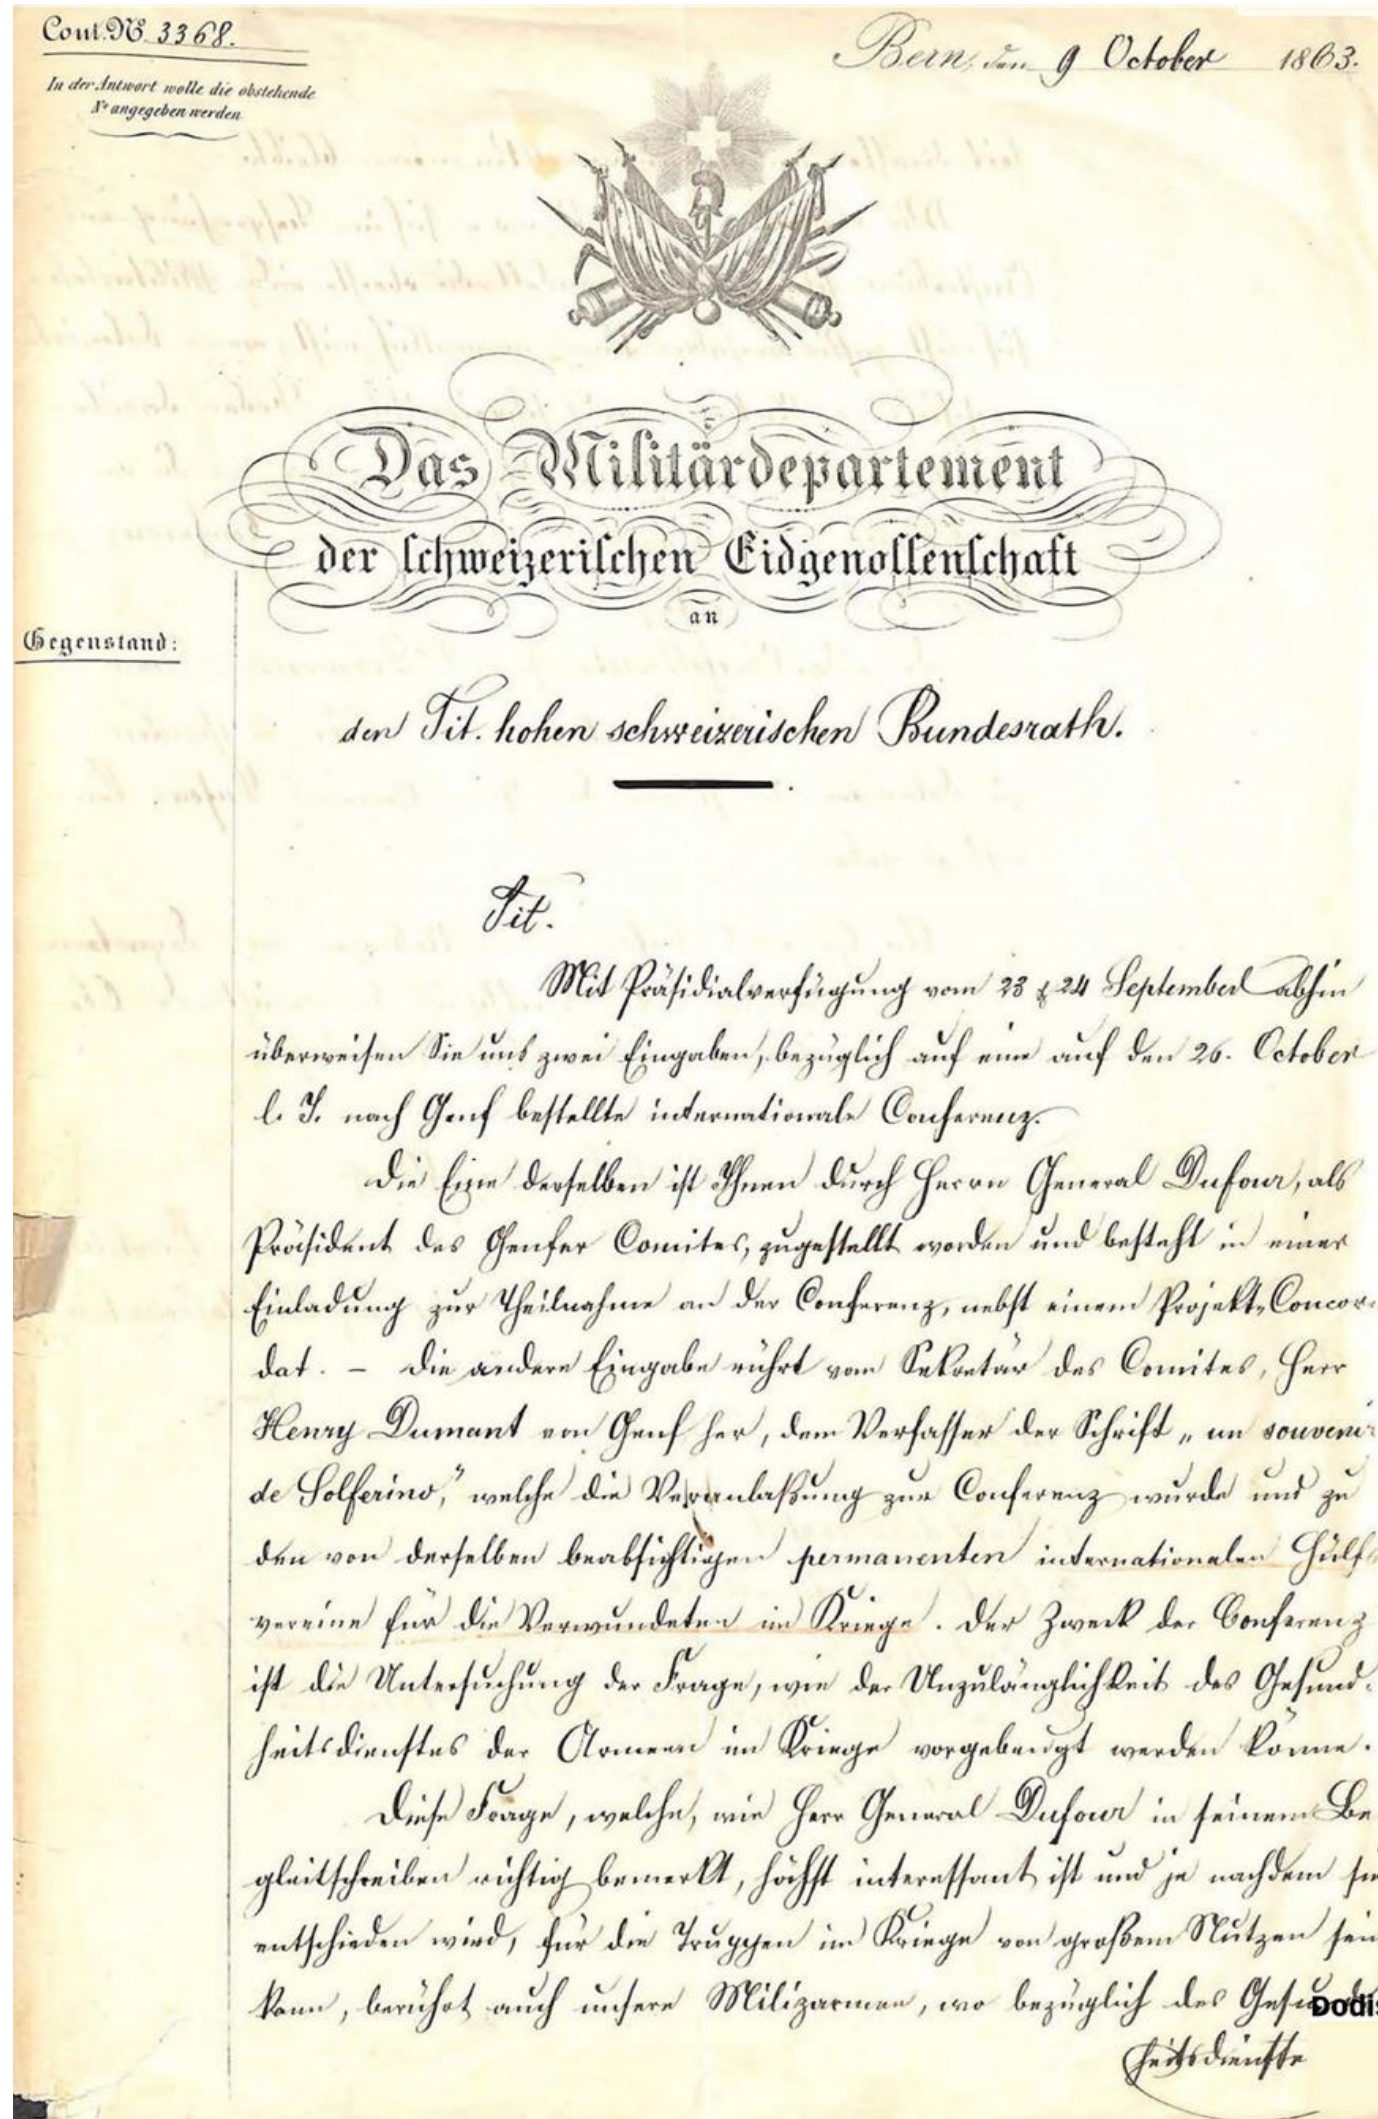 Cont. No. 3368.
Bern, den 9 October 1863.
In der Antwort wolle die obstehende
No angegeben werden
Das Militärdepartement
der schweizerischen Eidgenossenschaft
an
Gegenstand:
den Tit. hohen schweizerischen Bundesrath.
Tit.
Mit Präsidialverfügung vom 23 & 24 September abhin
überweisen Sie uns zwei Eingaben, bezüglich auf eine auf den 26. October
l. J. nach Genf bestellte internationale Conferenz.
Die Eine derselben ist Ihnen durch Herrn General Dufour, als
Präsident des Genfer Comites, zugestellt worden und besteht in einer
Einladung zur Theilnahme an der Conferenz, nebst einem Projekt-Concor-
dat. – Die andere Eingabe rührt vom Sekretär des Comites, Herr
Henry Dumant von Genf her, dem Verfasser der Schrift „un souvenir
de Solferino," welche die Veranlaßung zur Conferenz wurde und zu
den von derselben beabsichtigen permanenten internationalen Hülfs
vereine für die Verwundeten im Kriege. Der Zweck der Conferenz
ist die Untersuchung der Frage, wie der Unzulänglichkeit des Gesund-
heitsdienstes der Armeen im Kriege vorgebeugt werden könne.
Diese Frage, welche, wie Herr General Dufour in seinem Be
gleitschreiben richtig bemerkt, höchst interessant ist und je nachdem sie
entschieden wird, für die Truppen im Kriege von großem Nutzen sein
kann, berührt auch unsere Milizarmee, wo bezüglich des Gesund
Dodis
heitsdienste